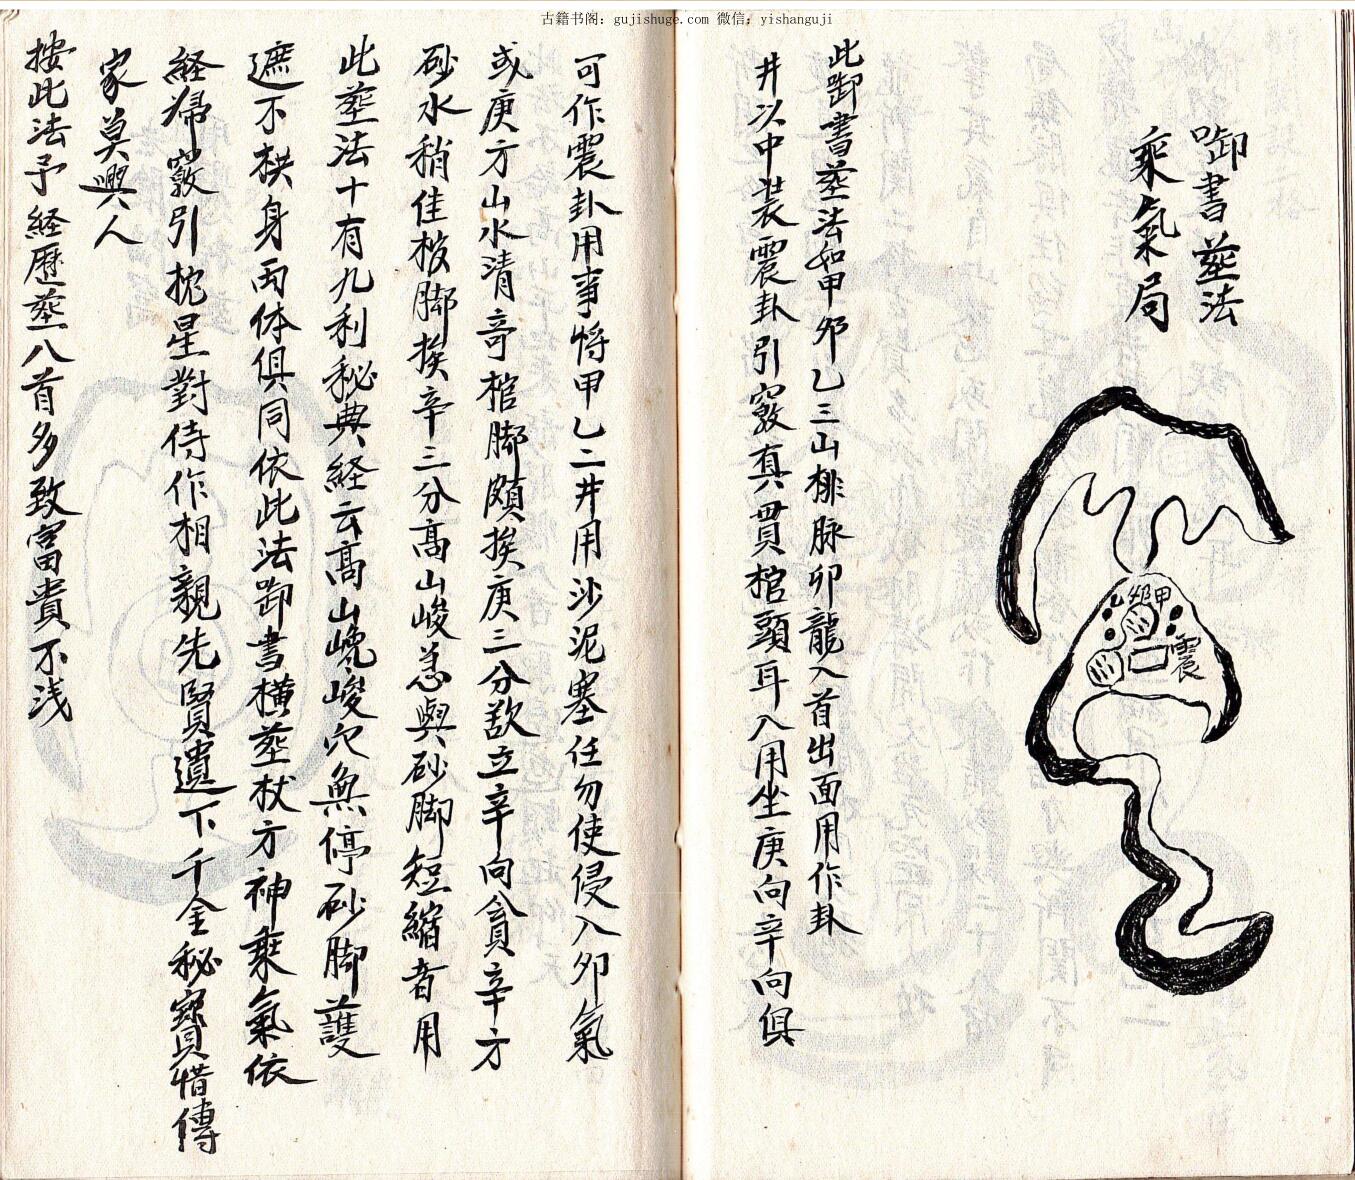 古籍书阁：gujishuge.com 微信：yishanguji
啣書塟法
乘氣局
甲
卯
乙
震
此啣書塟法如甲卯乙三山排脉卯龍入首出面用作卦
井以中装震卦引竅真貫棺頭耳入用坐庚向辛向俱
可作震卦用事将甲乙二井用沙泥塞任勿使侵入卯氣
或庚方山水清竒棺脚頗挨庚三分歀立辛向貪辛方
砂水稍佳棺脚挨辛三分高山峻急與砂脚短縮者用
此塟法十有九利秘典経云高山巉峻穴無停砂脚護
遮不栱身両体俱同依此法啣書横塟杖方神乘氣依
経㷌竅引挖星對待作相親先賢遺下千金秘寳惜傳
家莫與人
按此法予経歴塟八首多致富貴不浅